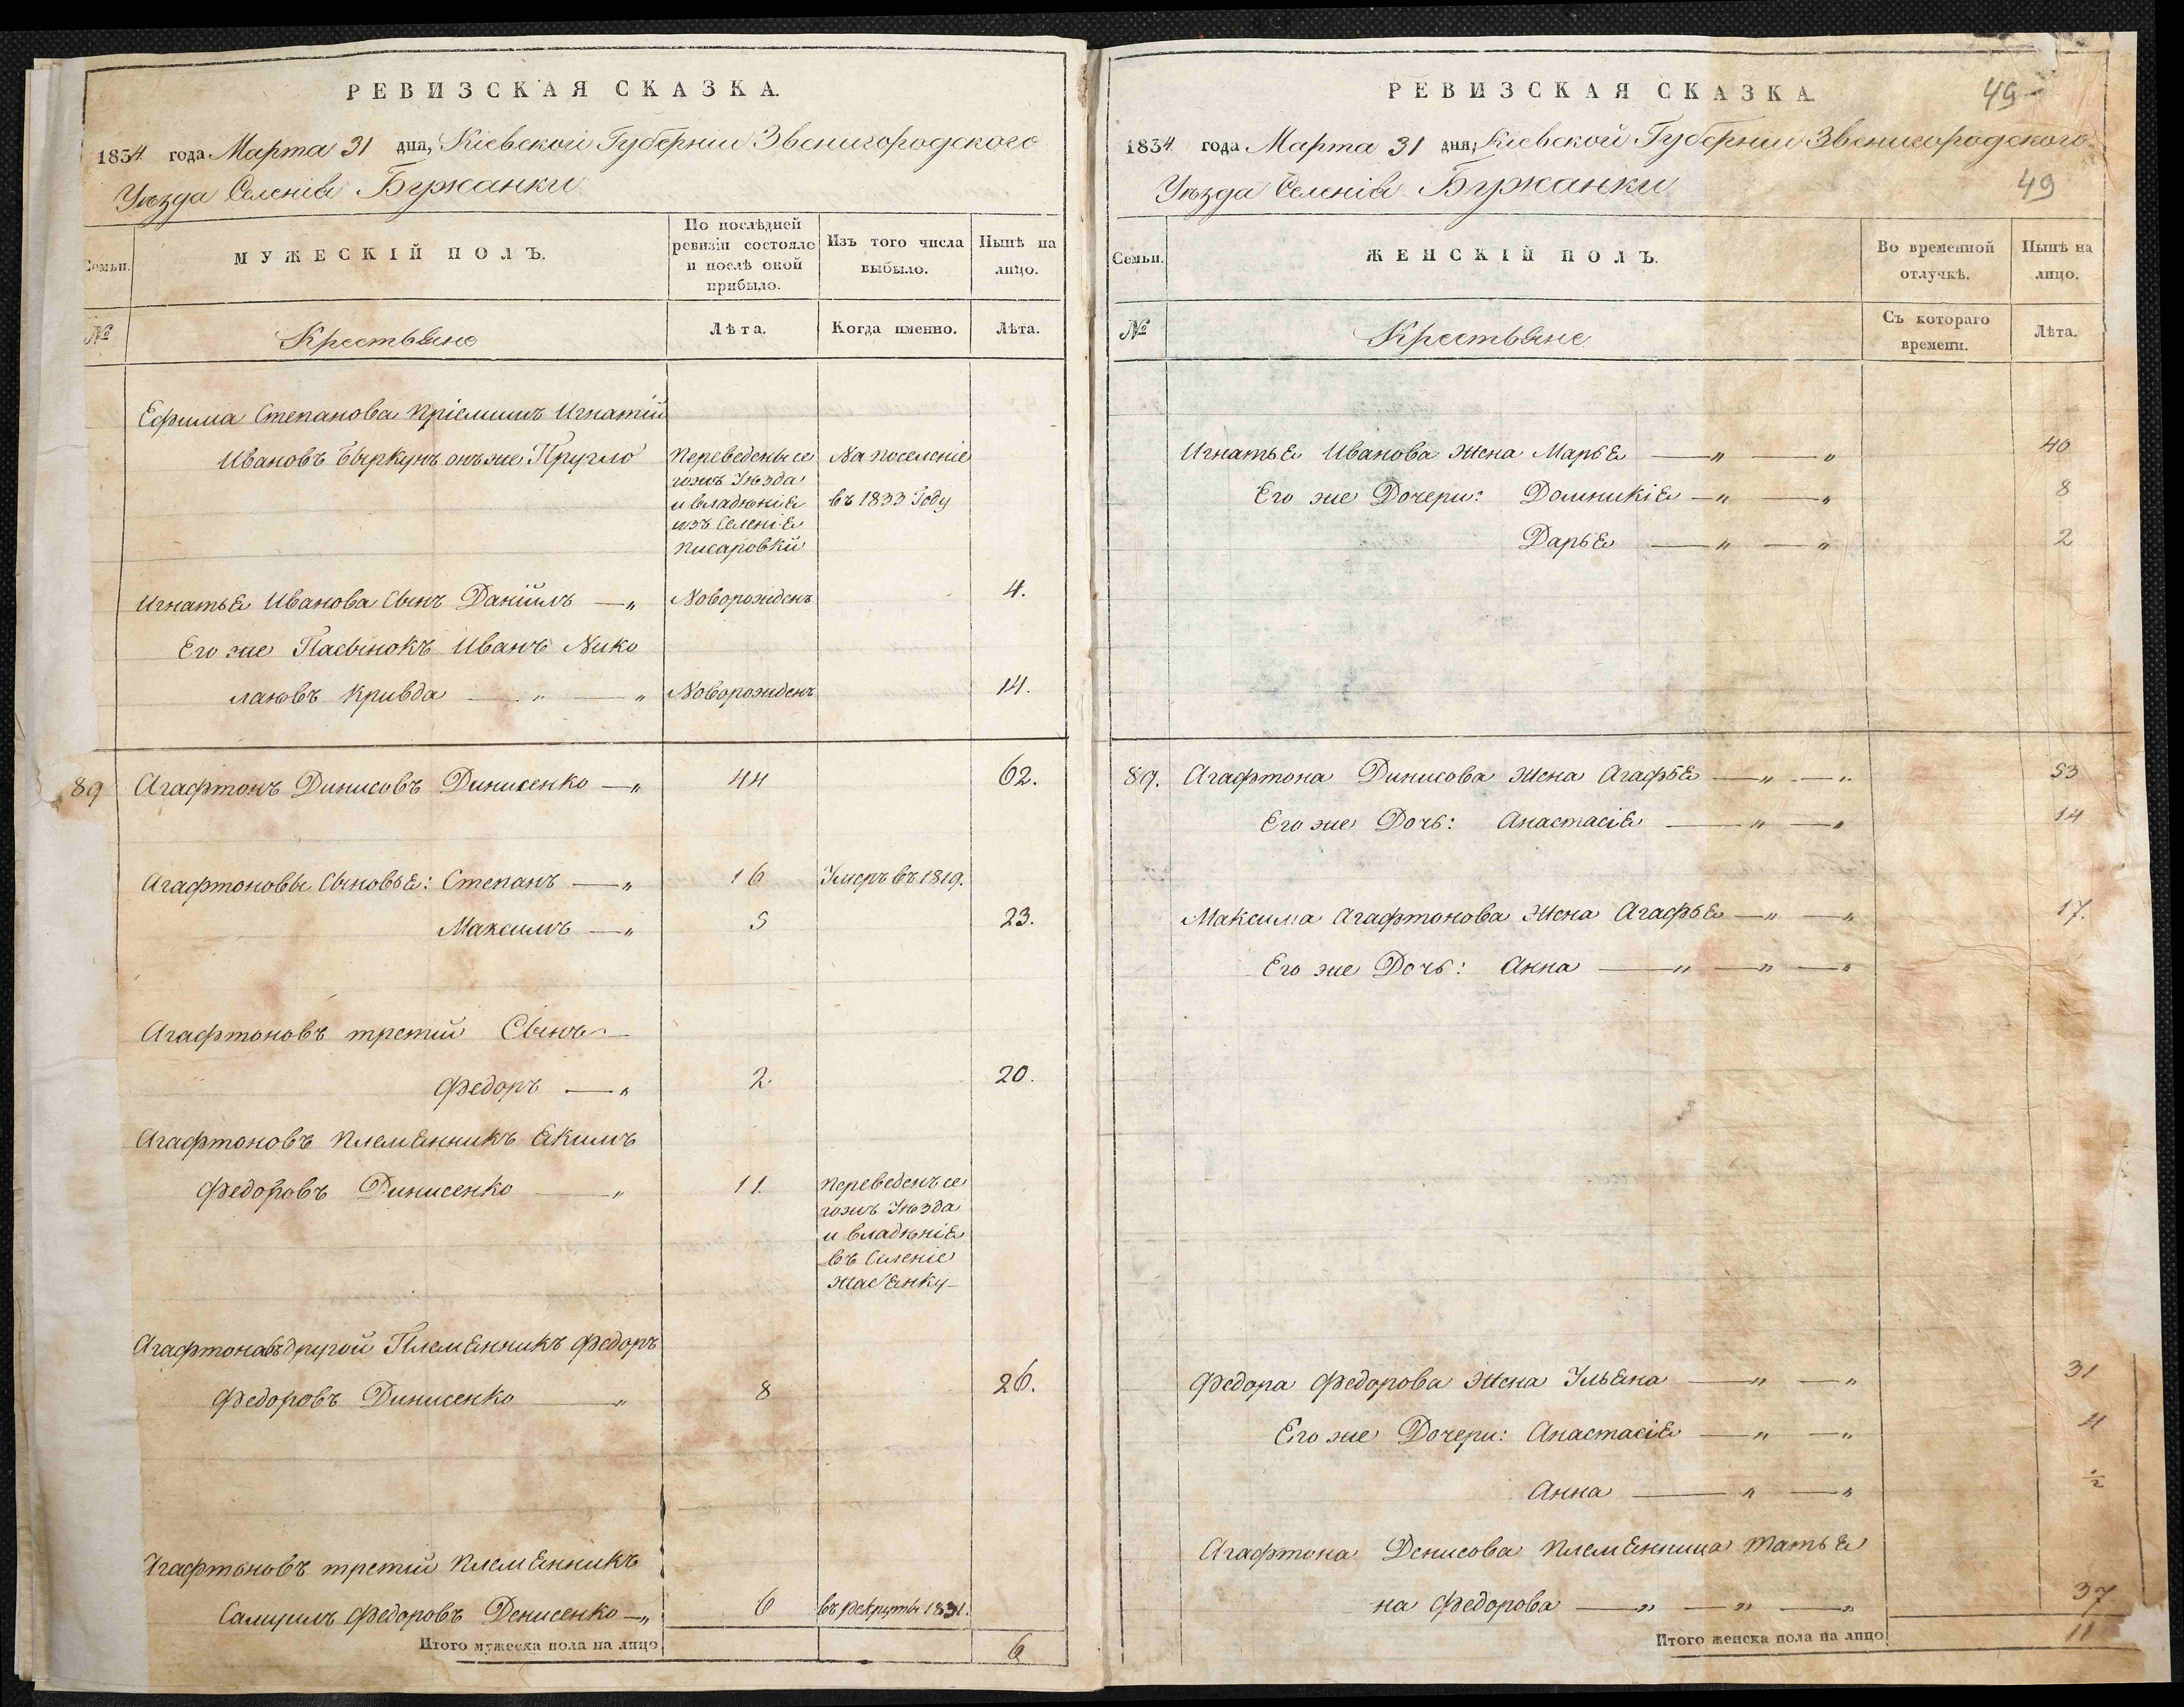 РЕВИЗСКАЯ СКАЗКА.
1834 года Марта 31 дня, Кіевской Губерніи Звенигородского
Уѣзда Селенія Бужанки
Семьи.
МУЖЕСКІЙ ПОЛЪ.
По послѣдней ревизіи состояло и послѣ оной прибыло.
Изъ того числа выбыло.
Нынѣ на лицо.
№
Крестьяне
Лѣта.
Когда именно.
Лѣта.
Ефима Степанова пріемишъ Игнатій
Ивановъ онъ же
Переведены се
на поселеніе
гожъ Уѣзда
и владѣнія
въ 1833 Году
изъ Селенія
Писаровки
Игнатья Иванова Сынъ Даніилъ — „
Новорожденъ
4.
Его же Пасынокъ Иванъ Нико
лаювъ Кривда — „ — „
Новорожденъ
14.
89
Агафтонъ Динисовъ Динисенко — „
44
62.
Агафтоновы Сыновья: Степанъ — „
16
Умеръ въ 1819.
Максимъ — „
5
23.
Агафтоновъ третій Сынъ —
Федоръ — „
2.
20.
Агафтоновъ племянникъ Якимъ
Федоровъ Динисенко — „
11.
переведенъ се
гожъ Уѣзда
и владѣнія
въ Селеніе
Агафтоновъ другой Племянникъ Федоръ
Федоровъ Динисенко — „
8
26.
Агафтоновъ третій племянникъ
Самуилъ Федоровъ Денисенко — „
6
въ рекруты 1831.
Итого мужеска пола на лицо
6
РЕВИЗСКАЯ СКАЗКА.
49
1834 года Марта 31 дня, Кіевской Губерніи Звенигородского
Уѣзда Селенія Бужанки
49
Семьи.
ЖЕНСКІЙ ПОЛЪ.
Во временной отлучкѣ.
Нынѣ на лицо.
№
Крестьяне
Съ котораго времени.
Лѣта.
Игнатья Иванова жена Марья — „ — „
40
Его же Дочери: Домникія — „ — „
8
Дарья — „ — „
2
89.
Агафтона Динисова жена Агафья — „ — „
53
Его же Дочь: Анастасія — „ — „
14
Максима Агафтонова жена Агафья — „ — „
17.
Его же Дочь: Анна — „ — „ — „
Федора Федорова жена Ульяна — „ — „
31
Его же Дочери: Анастасія — „ — „
4
Анна — „ — „
½
Агафтона Денисова племянница Татья
на Федорова — „ — „ — „
37
Итого женска пола на лицо
11